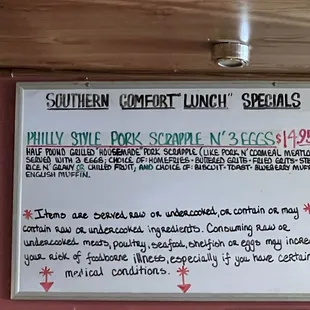 SOUTHERN COMFORT "LUNCH" SPECIALS
PHILLY STYLE PORK SCRAPPLE N' 3 EGGS $14.95
HALF POUND GRILLED "HOUSEMADE" PORK SCRAPPLE (LIKE PORK N' CORNMEAL MEATLO
SERVED WITH 3 EGGS; CHOICE OF: HOMEFRIES - BUTTERED GRITS - FRIED GRITS - STE
RICE N' GRAVY OR CHILLED FRUIT, AND CHOICE OF: BISCUIT - TOAST - BLUEBERRY MUFF
ENGLISH MUFFIN.
* Items are served raw or undercooked, or contain or may *
contain raw or undercooked ingredients. Consuming raw or
undercooked meats, poultry, seafood, shellfish or eggs may increa
your risk of foodborne illness, especially if you have certain
* medical conditions. *